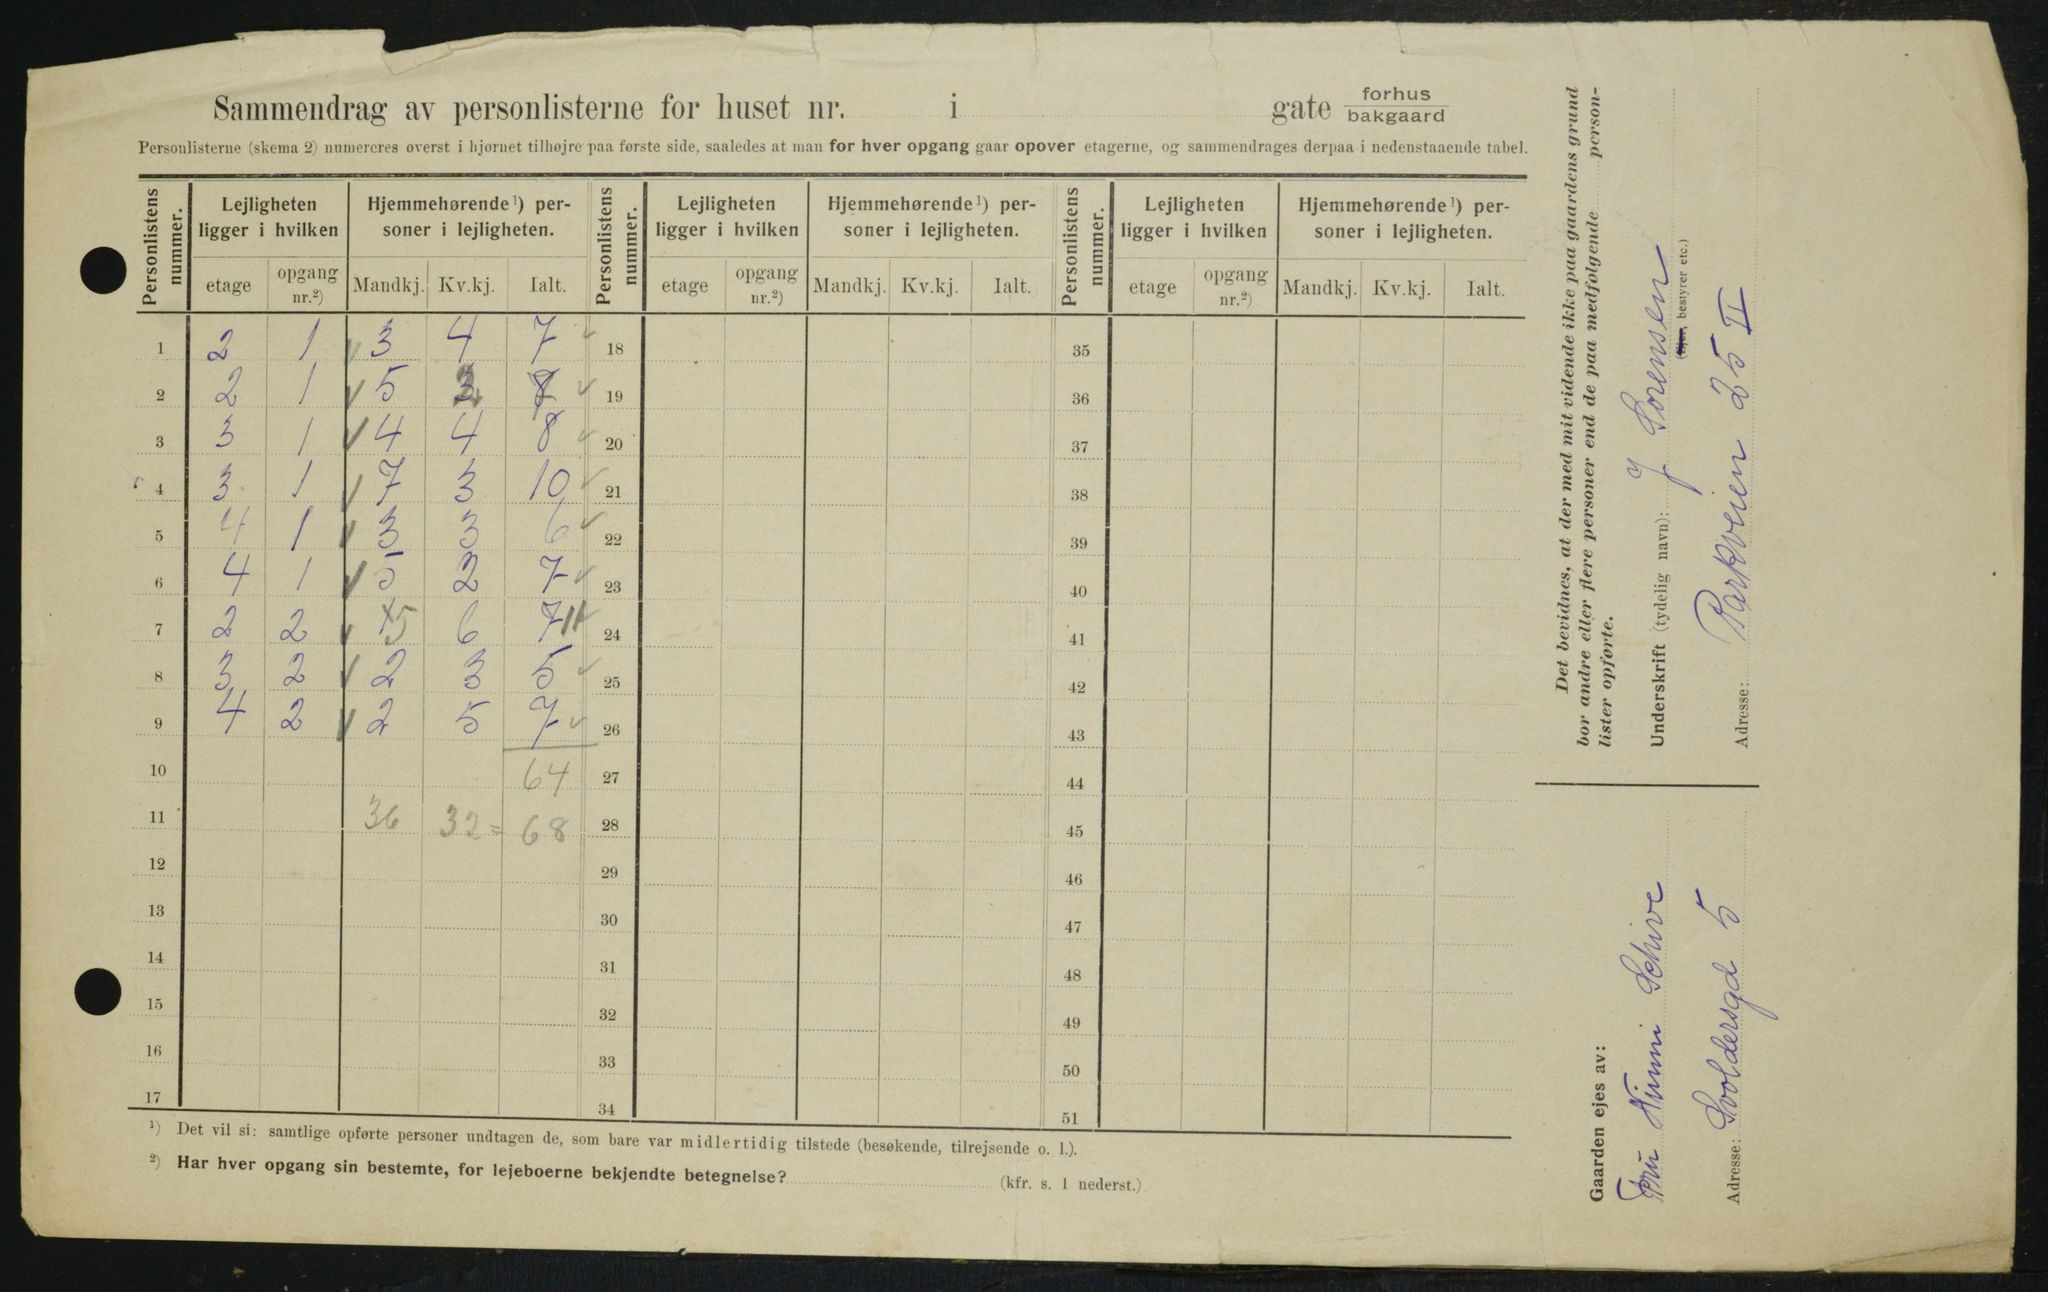 Sammendrag av personlisterne for huset nr. i gate forhus
bakgaard
Personlisterne (skema 2) numereres øverst i hjørnet tilhøjre paa første side, saaledes at man for hver opgang gaar opover etagerne, og sammendrages derpaa i nedenstaaende tabel.
Personlistens nummer. Lejligheten ligger i hvilken Hjemmehørende ¹) personer i lejligheten. Personlistens nummer. Lejligheten ligger i hvilken Hjemmehørende ¹) personer i lejligheten. Personlistens nummer. Lejligheten ligger i hvilken Hjemmehørende ¹) personer i lejligheten.
etage opgang nr.²) Mandkj. Kv.kj. Ialt. etage opgang nr.²) Mandkj. Kv.kj. Ialt. etage opgang nr.²) Mandkj. Kv.kj. Ialt.
1 2 1 ✓ 3 4 7 ✓ 18 35
2 2 1 ✓ 5 ✓ 19 36
3 3 1 ✓ 4 4 8 ✓ 20 37
4 3 1 ✓ 7 3 10 ✓ 21 38
5 4 1 ✓ 3 3 6 ✓ 22 39
6 4 1 ✓ 5 2 7 ✓ 23 40
7 2 2 ✓ 5 6 7 11 24 41
8 3 2 ✓ 2 3 5 ✓ 25 42
9 4 2 ✓ 2 5 7 ✓ 26 43
10 64 27 44
11 36 32 = 68 28 45
12 29 46
13 30 47
14 31 48
15 32 49
16 33 50
17 34 51
¹) Det vil si: samtlige opførte personer undtagen de, som bare var midlertidig tilstede (besøkende, tilrejsende o. l.).
²) Har hver opgang sin bestemte, for lejeboerne bekjendte betegnelse? (kfr. s. 1 nederst.)
Det bevidnes, at der med mit vidende ikke paa gaardens grund
bor andre eller flere personer end de paa medfølgende person-
lister opførte.
Underskrift (tydelig navn): J Sorensen
(Ejer, bestyrer etc.)
Adresse: Parkveien 25 II
Gaarden ejes av:
Fru Nimmi Schive
Adresse: Svoldersgd 5